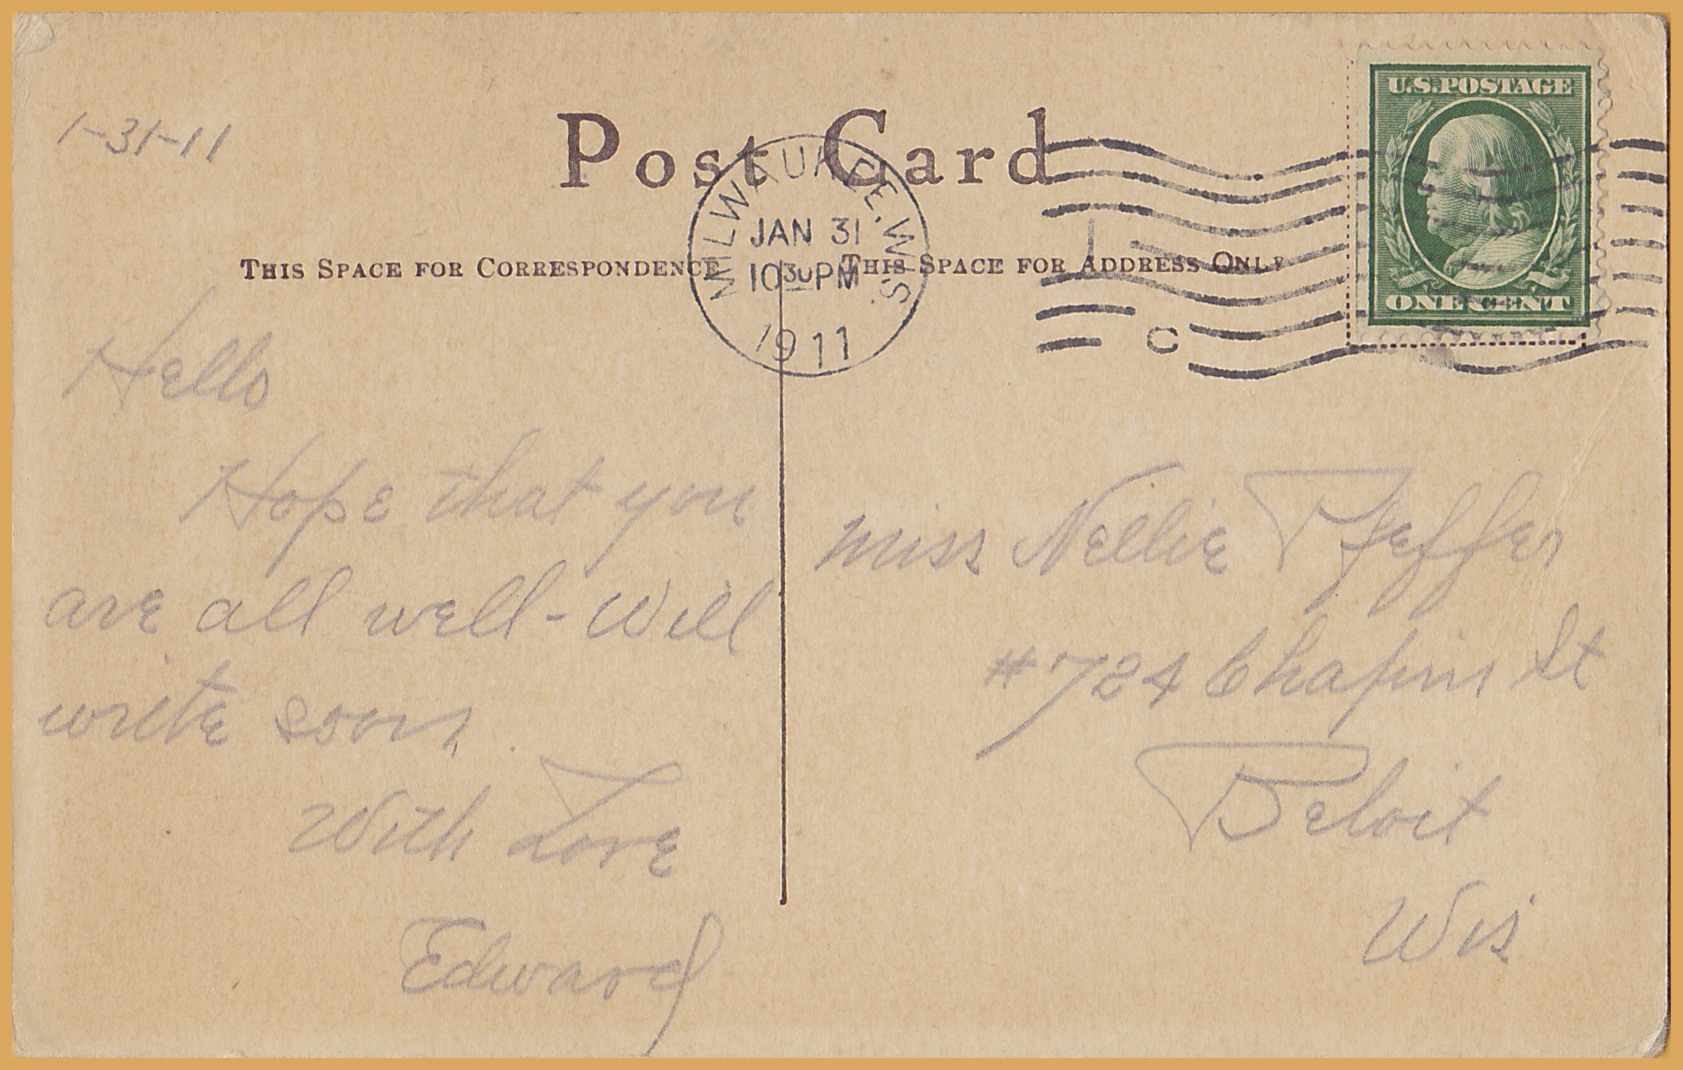 1-31-11
Post Card
U.S. POSTAGE
ONE CENT
MILWAUKEE, WIS.
JAN 31
10 30 PM
1911
C
THIS SPACE FOR CORRESPONDENCE
THIS SPACE FOR ADDRESS ONLY
Hello
Hope that you
are all well - Will
write soon.
With Love
Edward
Miss Nellie Pfeffer
#724 Chapin St
Beloit
Wis